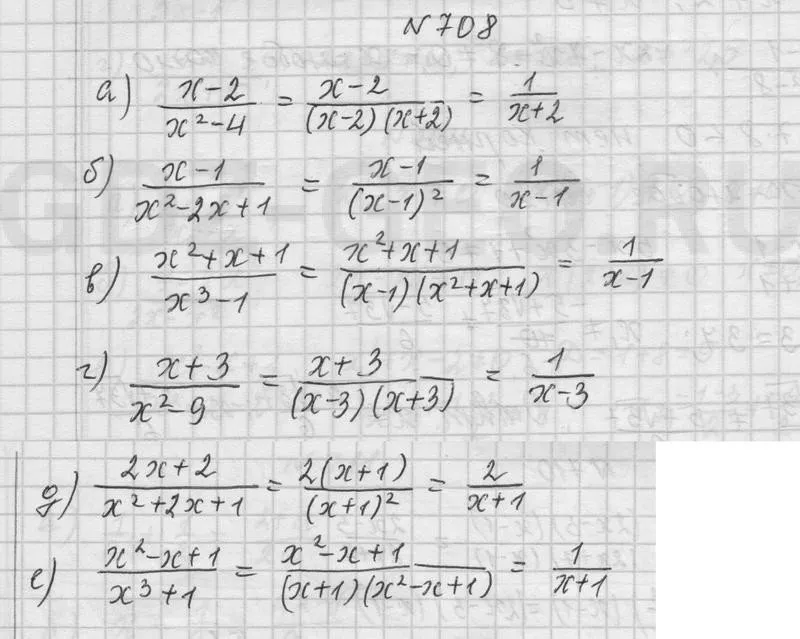 N 708
а) (x-2)/(x²-4) = (x-2)/((x-2)(x+2)) = 1/(x+2)
б) (x-1)/(x²-2x+1) = (x-1)/(x-1)² = 1/(x-1)
в) (x²+x+1)/(x³-1) = (x²+x+1)/((x-1)(x²+x+1)) = 1/(x-1)
г) (x+3)/(x²-9) = (x+3)/((x-3)(x+3)) = 1/(x-3)
д) (2x+2)/(x²+2x+1) = 2(x+1)/(x+1)² = 2/(x+1)
е) (x²-x+1)/(x³+1) = (x²-x+1)/((x+1)(x²-x+1)) = 1/(x+1)